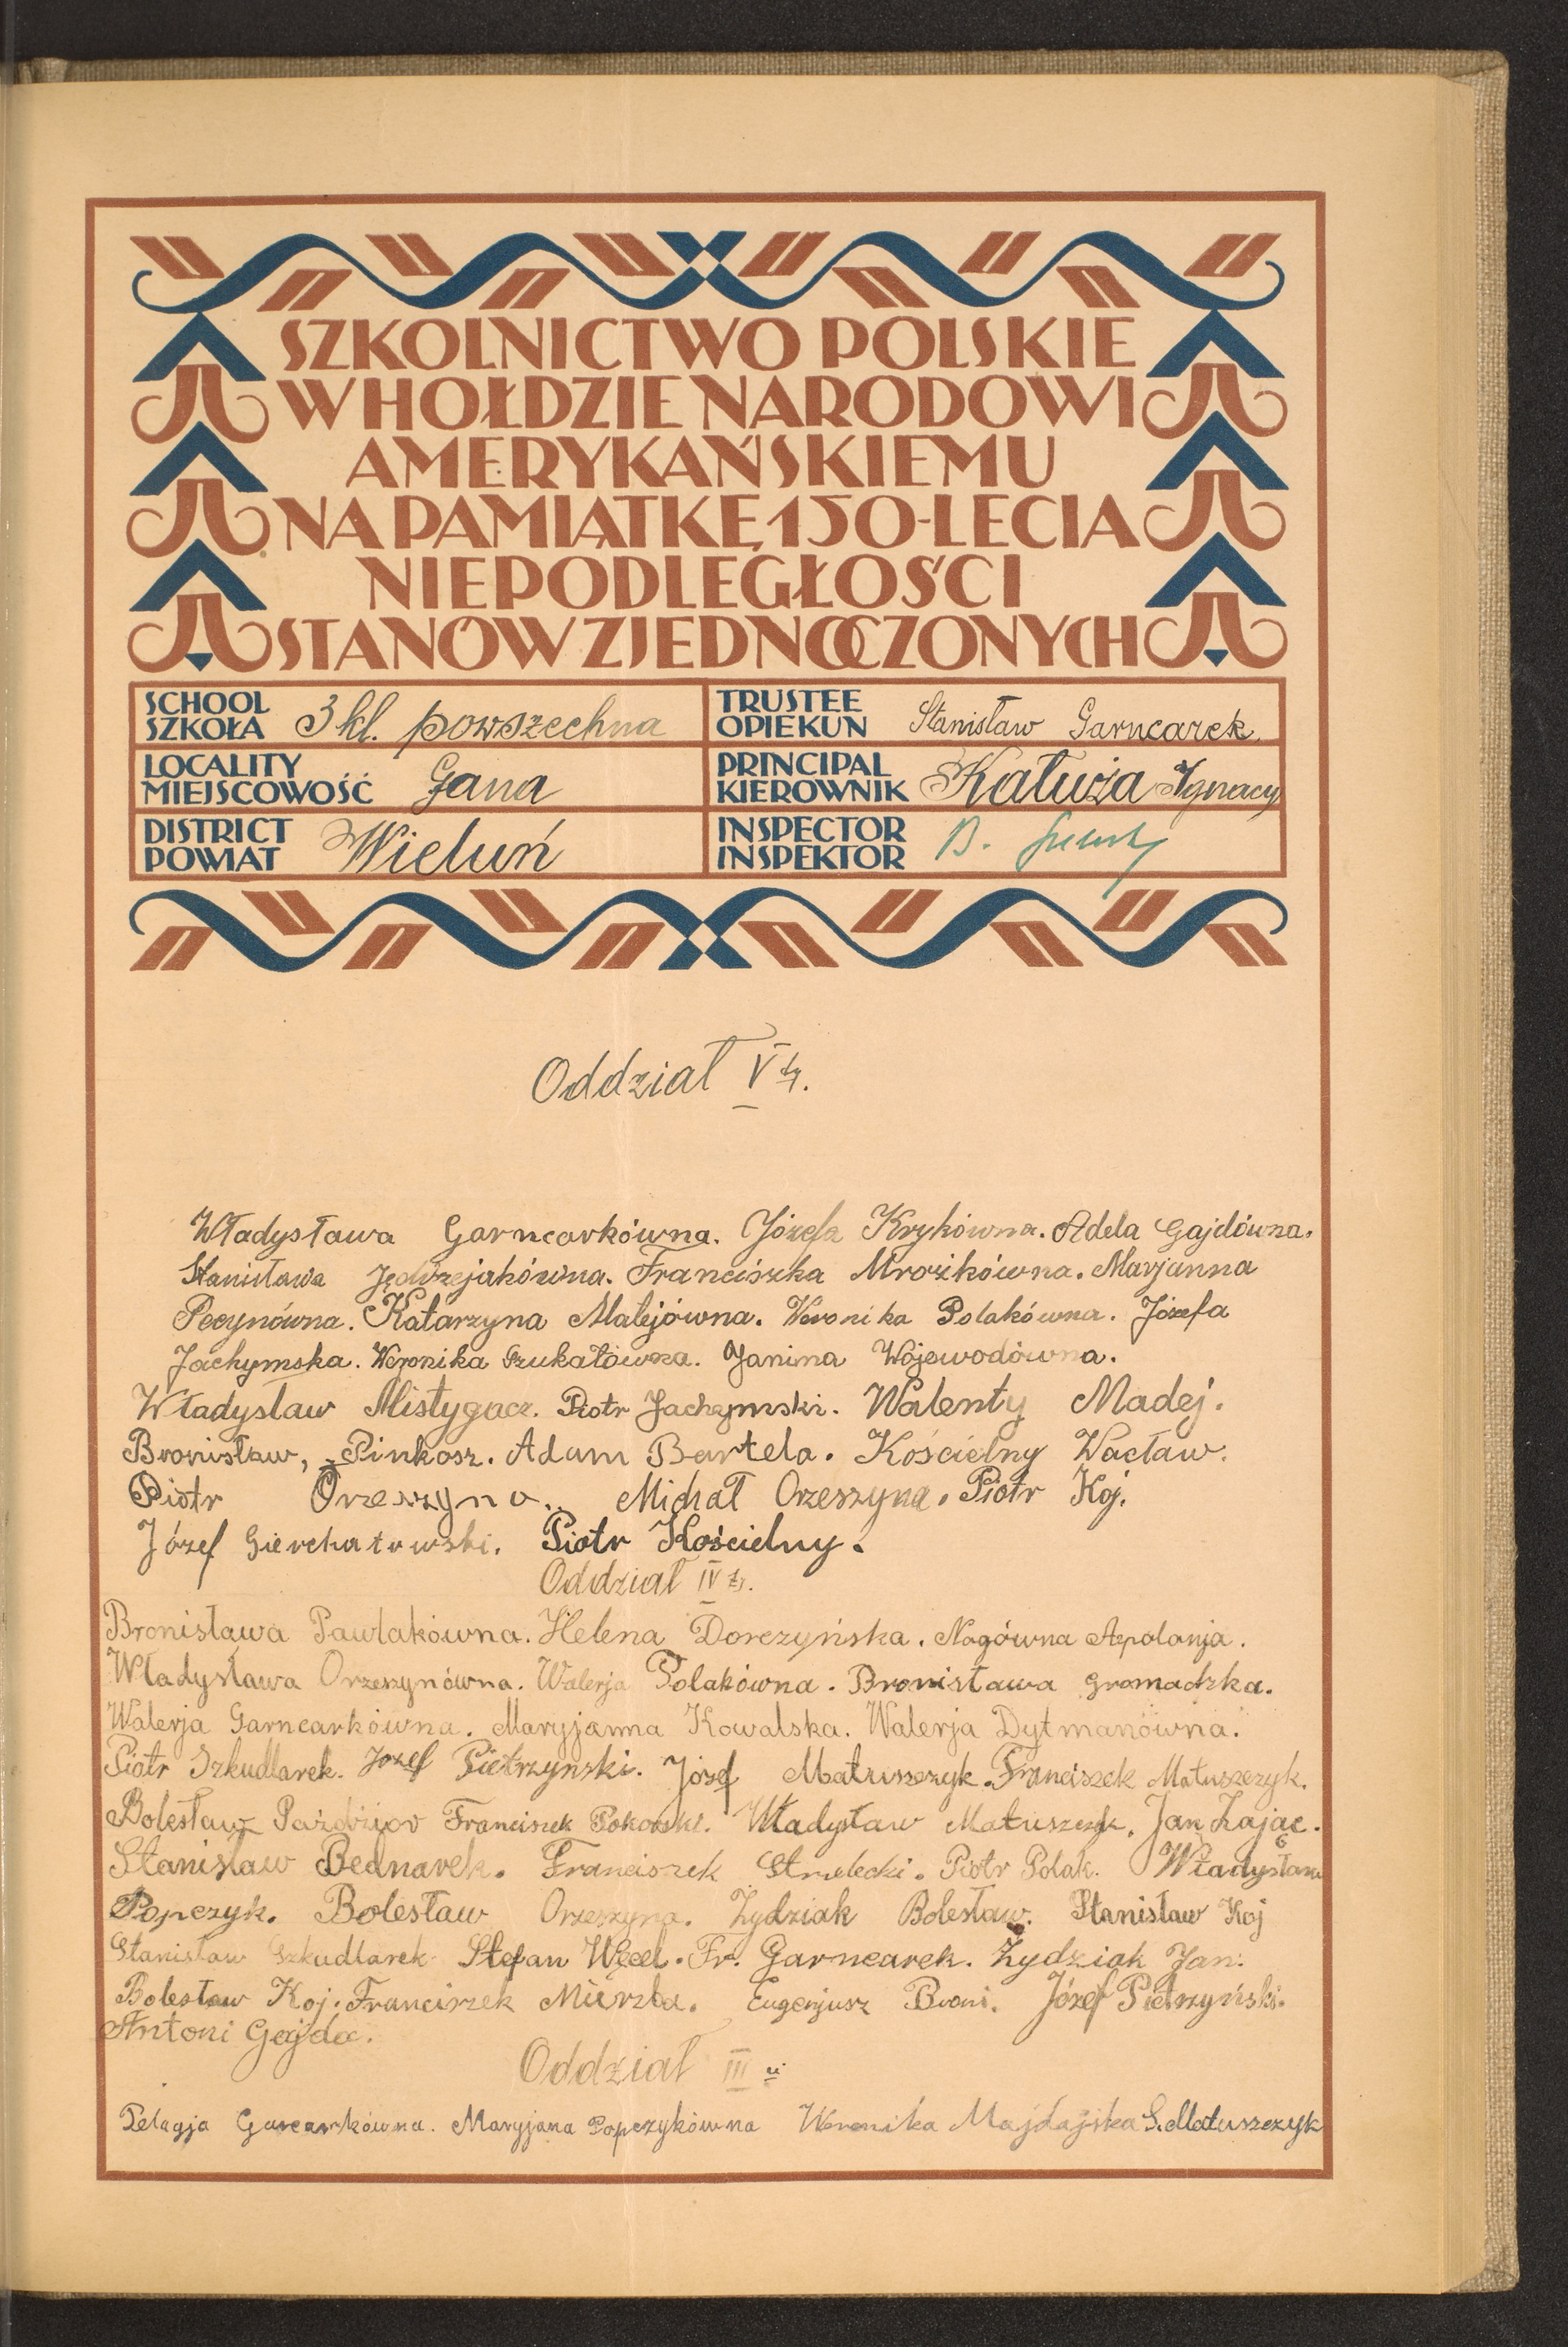 SZKOLNICTWO POLSKIE
W HOŁDZIE NARODOWI
AMERYKAŃSKIEMU
NA PAMIĄTKĘ 150-LECIA
NIEPODLEGŁOŚCI
STANÓW ZJEDNOCZONYCH
SCHOOL
SZKOŁA 3 kl. powszechna
TRUSTEE
OPIEKUN Stanisław Garncarek.
LOCALITY
MIEJSCOWOŚĆ Gana
PRINCIPAL
KIEROWNIK Kałuża Ignacy
DISTRICT
POWIAT Wieluń
INSPECTOR
INSPEKTOR B.
Oddział V ty.
Władysława Garncarkówna. Józefa Krykówna. Adela Gajdówna.
Stanisława Jędrzejakówna. Franciszka Mrozikówna. Marjanna
Pecynówna. Katarzyna Matejówna. Weronika Polakówna. Józefa
Jachymska. Weronika Szukałówna. Janina Wojewodówna.
Władysław Mistygacz. Piotr Jachymski. Walenty Madej.
Bronisław, Pinkosz. Adam Bartela. Kościelny Wacław.
Piotr Orzeszyna. Michał Orzeszyna. Piotr Koj.
Józef Gierchatowski. Piotr Kościelny.
Oddział IV ty.
Bronisława Pawlakówna. Helena Dorczyńska. Nogówna Apolonja.
Władysława Orzeszynówna. Walerja Polakówna. Bronisława Gromadzka.
Walerja Garncarkówna. Maryjanna Kowalska. Walerja Dytmanówna.
Piotr Szkudlarek. Józef Pietrzynski. Józef Matuszczyk. Franciszek Matuszczyk.
Bolesław Paździor Franciszek Pokorski. Władysław Matuszczyk. Jan Zając.
Stanisław Bednarek. Franciszek Strzelecki. Piotr Polak. Władysław
Popczyk. Bolesław Orzeszyna. Żydziak Bolesław. Stanisław Koj
Stanisław Szkudlarek. Stefan Węcel. Fr. Garncarek. Żydziak Jan.
Bolesław Koj. Franciszek Mierzba. Eugenjusz Broni. Józef Pietrzyński.
Antoni Gajda.
Oddział III ci
Pelagja Garcarkówna. Maryjana Popczykówna Weronika Majdajska S. Matuszczyk